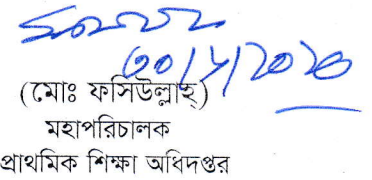 (মোঃ ফসিউল্লাহ্)
মহাপরিচালক
প্রাথমিক শিক্ষা অধিদপ্তর